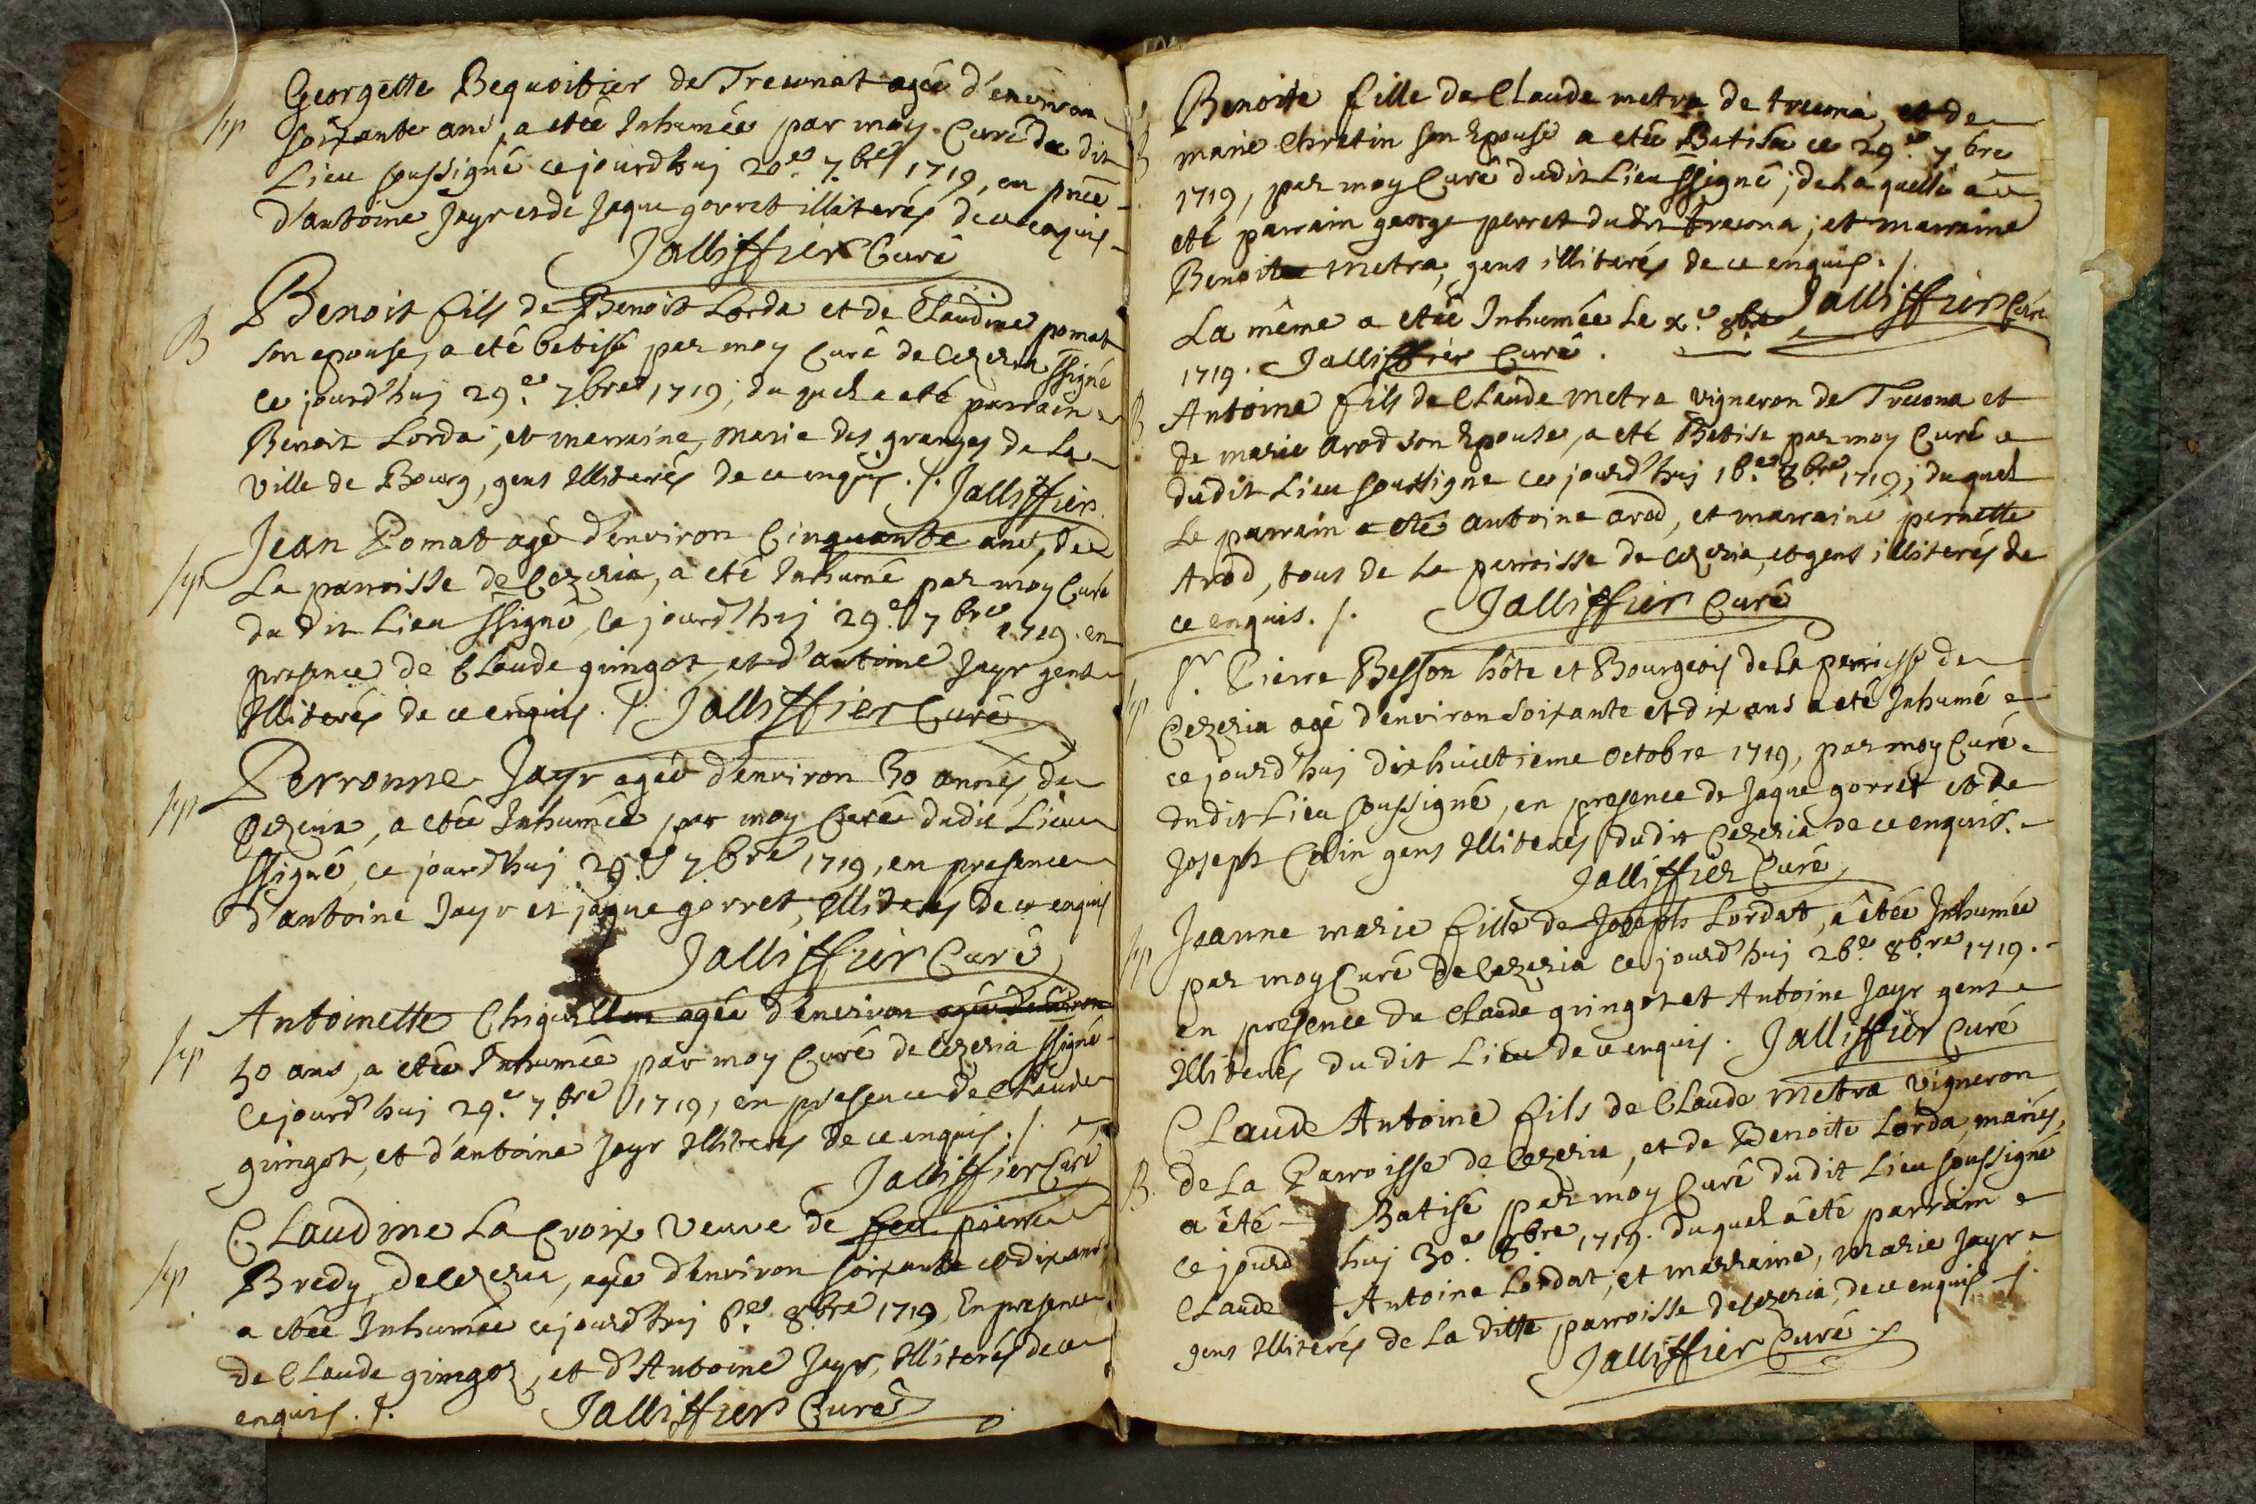 Georgette Bequoitier de Treconat agée d'environ
sep soixante ans, a etée Inhumée par moy Curé du dit
Lieu soussigné ce jourd'huj 20.e 7.bre 1719, en pnce
d'antoine Jayr et de Jaque gorret illiterés de ce enquis
Jalliffier Curé
Benoit fils de Benoit Lorda et de Claudine pomat
B son epouse, a eté batisé par moy Curé de Cezeria ssigné
ce jourd'huj 29.e 7.bre 1719; du quel a eté parrain
Benoit Lorda, et marraine, Marie des granges de La
ville de Bourg, gens Illiterés de ce enquis ./. Jalliffier
Jean Pomat agé d'environ Cinquante ans, de
sep La parroisse de Cezeria, a eté Inhumé par moy Curé
du dit Lieu ssigné, ce jourd'huj 29.e 7bre 1719. en
presence de Claude gringot, et d'antoine Jayr gens
Illiterés de ce enquis ./. Jalliffier Curé
Perronne Jayr agée d'environ 30 années, de
sep Cezeria, a etée Inhumée par moy Curé dudit Lieu
ssigné, ce jourd'huj 29.e 7bre 1719, en presence
d'antoine Jayr et jaque gorret, Illiterés de ce enquis
Jalliffier Curé
Antoinette agée d'environ agée d'environ
sep 50 ans, a etée Inhumée par moy Curé de Cezeria ssigné
Ce jourd'huj 29.e 7.bre 1719, en presence de Claude
gringot, et d'antoine Jayr Illiterés de ce enquis ./.
Jalliffier Curé
Claudine La Croix veuve de feu pierre
sep Bredy, de Cezeria, agée d'environ soixante et dix ans
a etée Inhumée ce jourd'huj 6.e 8.bre 1719, En presence
de Claude gringoz, et d'Antoine Jayr, Illiterés de ce
enquis ./. Jalliffier Curé
Benoite fille de Claude metra de trecona, et de
B marie Chretin son Epouse a etée Batisée ce 29.e 7bre
1719, par moy Curé dudit Lieu ssigné; de Laquelle a
eté parrain george perret dudit trecona; et marraine
Benoite Metra, gens illiterés de ce enquis ./.
La même a etée Inhumée Le x.e 8bre Jalliffier Curé
1719. Jalliffier Curé.
B. Antoine fils de Claude Metra vigneron de Trecona et
de marie Arod son Epouse, a eté Batisé par moy Curé
dudit Lieu soussigné ce jourd'huj 16.e 8.bre 1719; du quel
Le parrain a eté antoine arod, et marraine pernette
Arod, tous de La parroisse de cezeria, et gens illiterés de
ce enquis ./. Jalliffier Curé
Sr. Pierre Besson hôte et Bourgeois de La parroisse de
sep Cezeria agé d'environ soixante et dix ans a eté Inhumé
ce jourd'huj dixhuictieme octobre 1719, par moy Curé
dudit Lieu soussigné, en presence de Jaque gorret et de
Joseph Colin gens Illiterés dudit Cezeria de ce enquis.
Jalliffier Curé
Jeanne marie fille de Joseph Lordat, a êtée Inhumée
sep par moy Curé de Cezeria ce jourd'huj 26.e 8.bre 1719.
en presence de Claude gringot et Antoine Jayr gens
Illiterés du dit Lieu de ce enquis. Jalliffier Curé
Claude Antoine fils de Claude Metra vigneron
B. de La Parroisse de Cezeria, et de Benoite Lorda, mariés,
a êté Batisé par moy Curé du dit Lieu soussigné
ce jourd huj 30.e 8.bre 1719. du quel a êté parrain
Claude Antoine Lordat, et marraine, Marie Jayr
gens Illiterés de La ditte parroisse de Cezeria, de ce enquis ./.
Jalliffier Curé